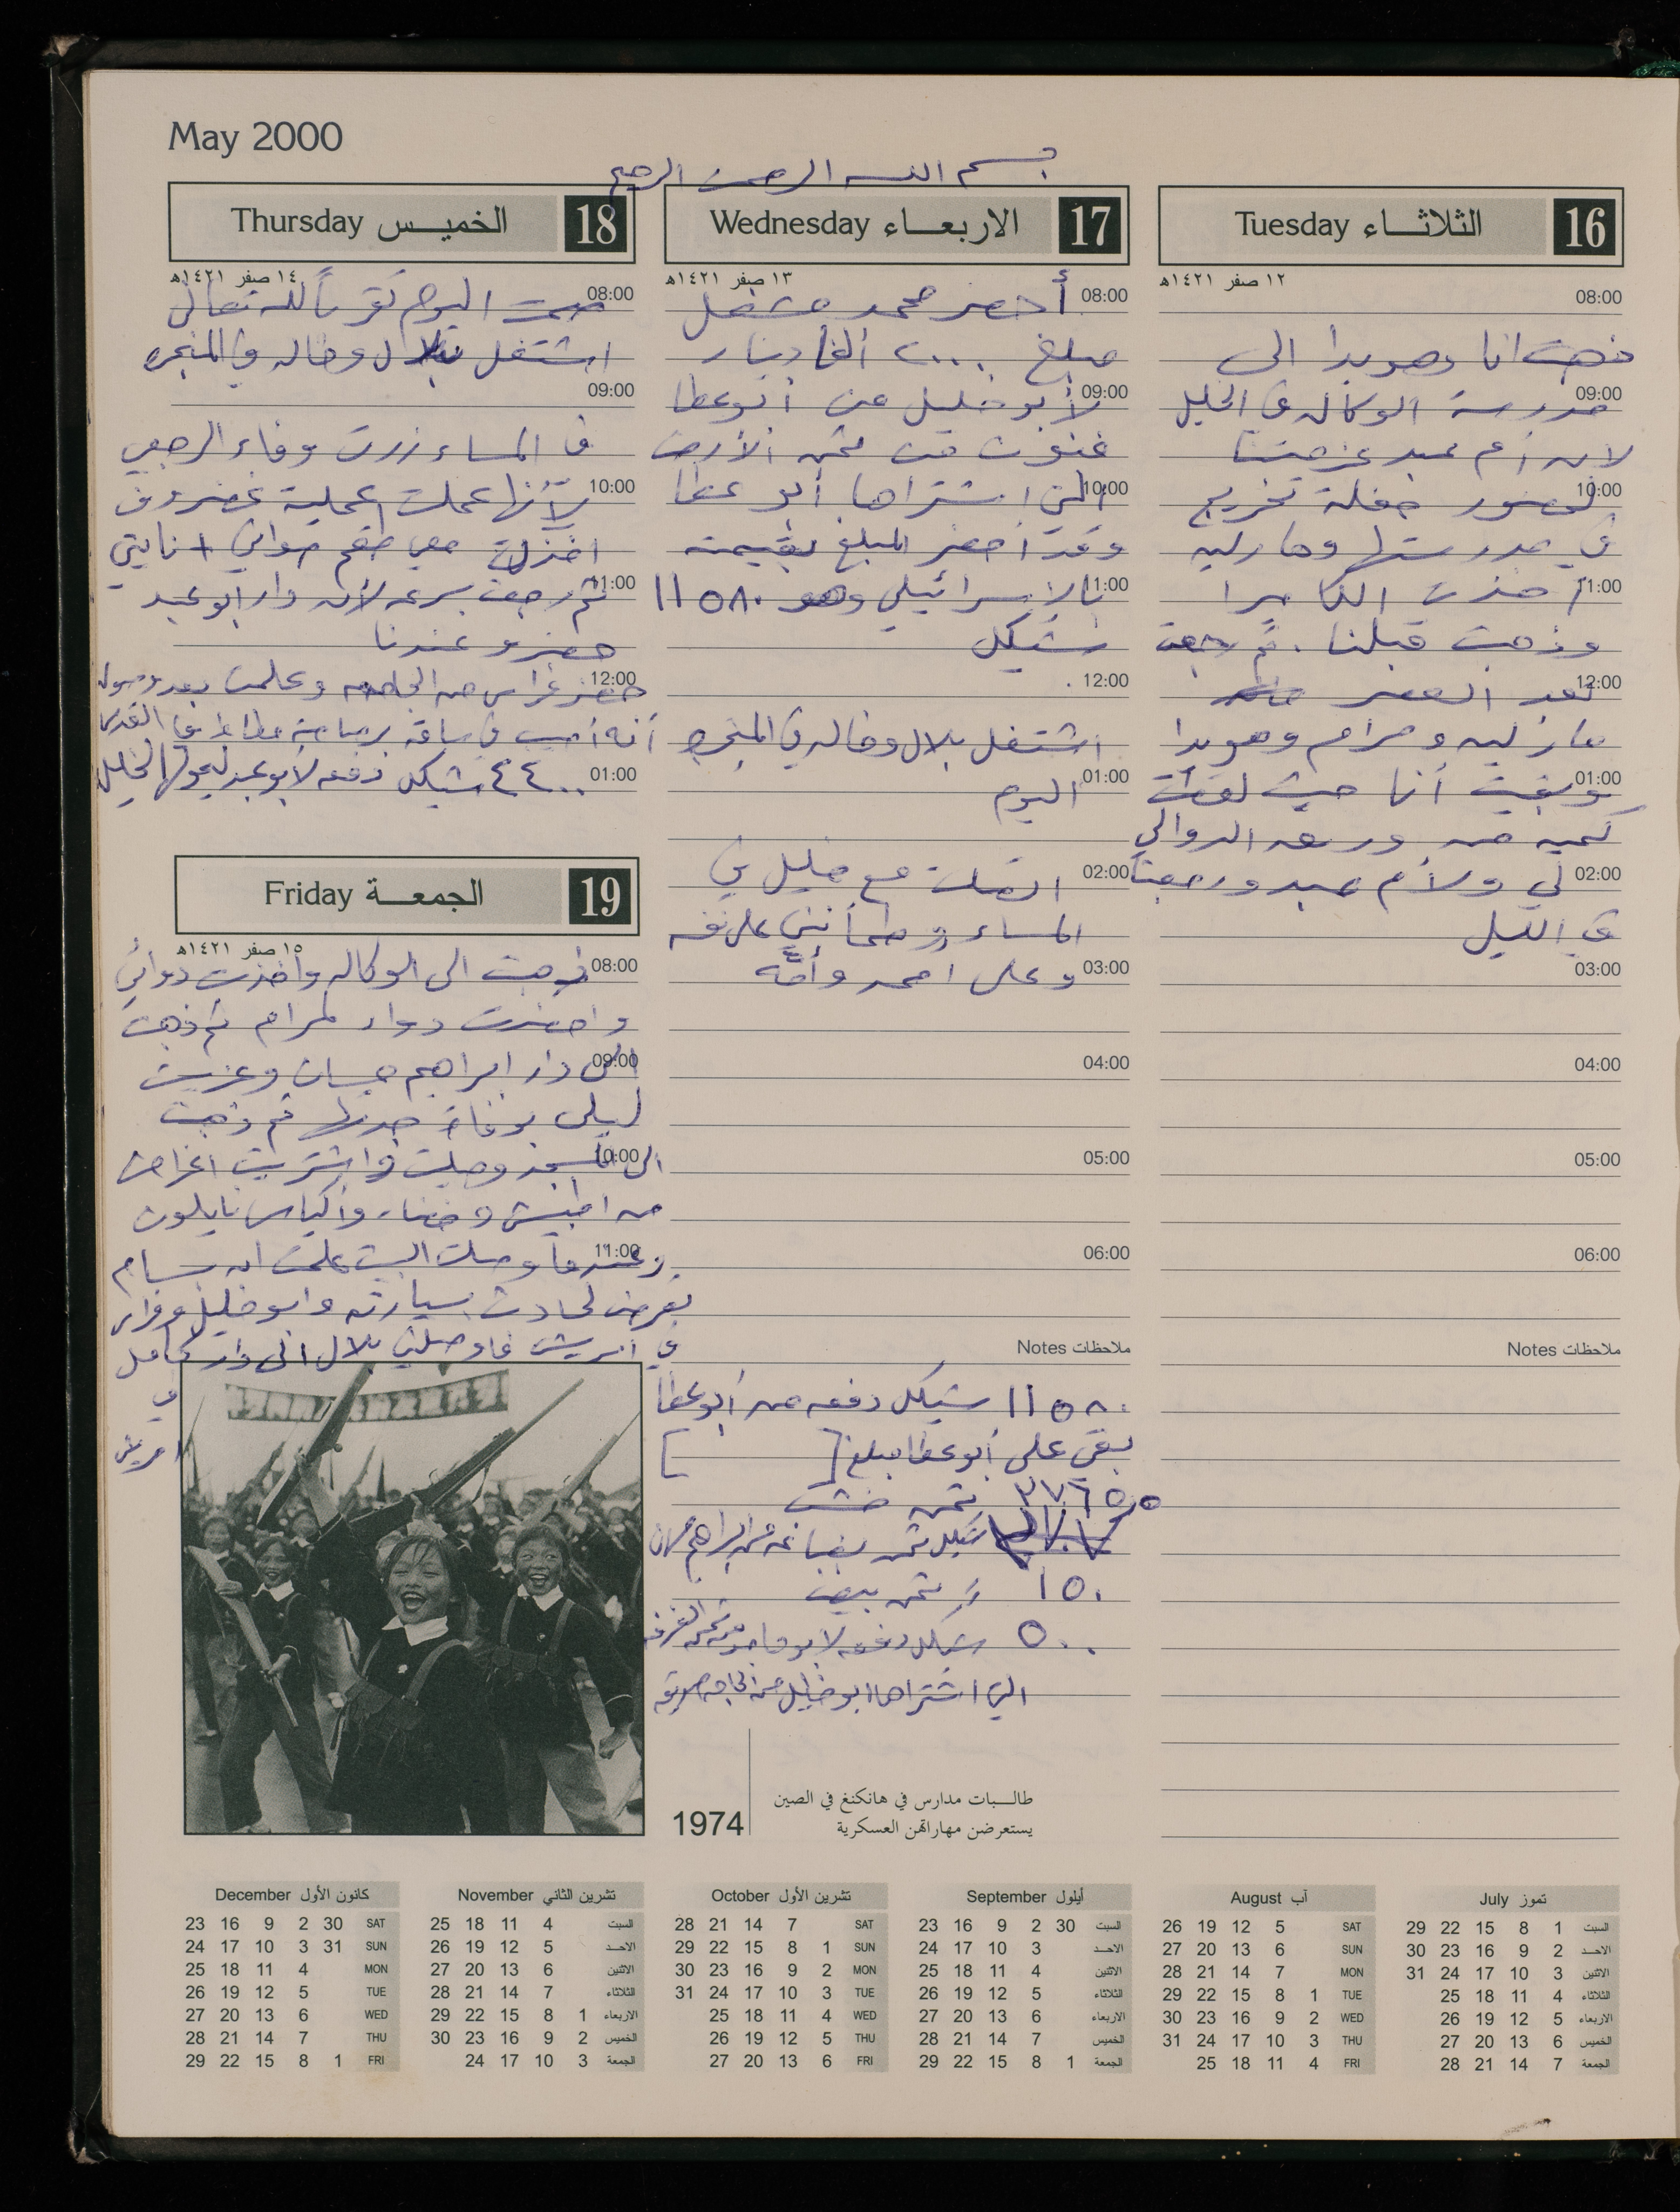 May 2000
بسم الله الرحمن الرحيم
16 الثلاثاء Tuesday
١٢ صفر ١٤٢١هـ
08:00
ذهبت انا وهويدا الى
09:00
مدرسة الوكاله في الخليل
لان أم عبد عزمتنا
10:00
لحضور حفلة تخريج
في مدرستها ومارلين
11:00
أخذت الكاميرا
وذهبت قبلنا . ثم رجعت
12:00
بعد العصر
مارلين ومرام وهويدا
01:00
وبقيت أنا حيث لقطت
كميه من ورق الدوالي
02:00
لي ولأم عبد ورجعنا
في الليل
03:00
04:00
05:00
06:00
ملاحظات Notes
17 الاربعاء Wednesday
١٣ صفر ١٤٢١هـ
08:00
أحضر محمد مشعل
مبلغ ٢٠٠٠ ألفا دينار
09:00
لأبو خليل عن أبو عطا
من ثمن الأرض
10:00
التي اشتراها أبو عطا
وقد أحضر المبلغ بقيمته
11:00
بالإسرائيلي وهو ١١٥٨٠
شيكل
12:00
اشتغل بلال وخاله في المنجره
01:00
اليوم
02:00
اتصلت مع خليل في
المساء وطمأنني على نفسه
03:00
وعلى احمد وأمه
04:00
05:00
06:00
ملاحظات Notes
١١٥٨٠ شيكل دفعه من أبو عطا
بقي على أبو عطا مبلغ [ ]
٣٧٦٥٫٥ ثمن خشب
شيكل ثمن بضاعه من ابراهيم
١٥٠ ثمن بيض
٥٠٠ شيكل دفعه لابو من ثمن
التي اشتراها ابو خليل من
18 الخميس Thursday
١٤ صفر ١٤٢١هـ
08:00
صمت اليوم تقرباً لله تعالى
اشتغل بلال وخاله في المنجره
09:00
في المساء زرت وفاء الرجبي
10:00
لأنها عملت عملية غضروف
اخذت معي طقم صواني
11:00
ثم رجعت بسرعه لأن دار ابو عبد
حضرو عندنا
12:00
حضر فراس من الجامعه وعلمت بعد وصوله
أنه أصيب في ساقه برصاصة مطاط في القدس
01:00
٤٤٠٠ شيكل دفعه لأبو عبد
19 الجمعة Friday
١٥ صفر ١٤٢١هـ
08:00
ذهبت الى الوكاله وأخذت دوائي
واحضرت دواء لمرام ثم ذهبت
09:00
الى دار ابراهيم وعزيت
ليلى بوفاة جدتها ثم ذهبت
10:00
الى المسجد وصليت واشتريت اغراض
من وخضار وأكياس نايلون
11:00
وعندما وصلت البيت علمت ان بسام
تعرض لحادث بسيارته وابو خليل وفراس
في امريش فاوصلني بلال الى دار كامل
في
امريش
1974
طالبات مدارس في هانكنغ في الصين
يستعرضن مهاراتهن العسكرية
تموز July
السبت 1 8 15 22 29
الاحد 2 9 16 23 30
الاثنين 3 10 17 24 31
الثلاثاء 4 11 18 25
الاربعاء 5 12 19 26
الخميس 6 13 20 27
الجمعة 7 14 21 28
آب August
SAT 5 12 19 26
SUN 6 13 20 27
MON 7 14 21 28
TUE 1 8 15 22 29
WED 2 9 16 23 30
THU 3 10 17 24 31
FRI 4 11 18 25
أيلول September
السبت 30 2 9 16 23
الاحد 3 10 17 24
الاثنين 4 11 18 25
الثلاثاء 5 12 19 26
الاربعاء 6 13 20 27
الخميس 7 14 21 28
الجمعة 1 8 15 22 29
تشرين الأول October
SAT 7 14 21 28
SUN 1 8 15 22 29
MON 2 9 16 23 30
TUE 3 10 17 24 31
WED 4 11 18 25
THU 5 12 19 26
FRI 6 13 20 27
تشرين الثاني November
السبت 4 11 18 25
الاحد 5 12 19 26
الاثنين 6 13 20 27
الثلاثاء 7 14 21 28
الاربعاء 1 8 15 22 29
الخميس 2 9 16 23 30
الجمعة 3 10 17 24
كانون الأول December
SAT 30 2 9 16 23
SUN 31 3 10 17 24
MON 4 11 18 25
TUE 5 12 19 26
WED 6 13 20 27
THU 7 14 21 28
FRI 1 8 15 22 29